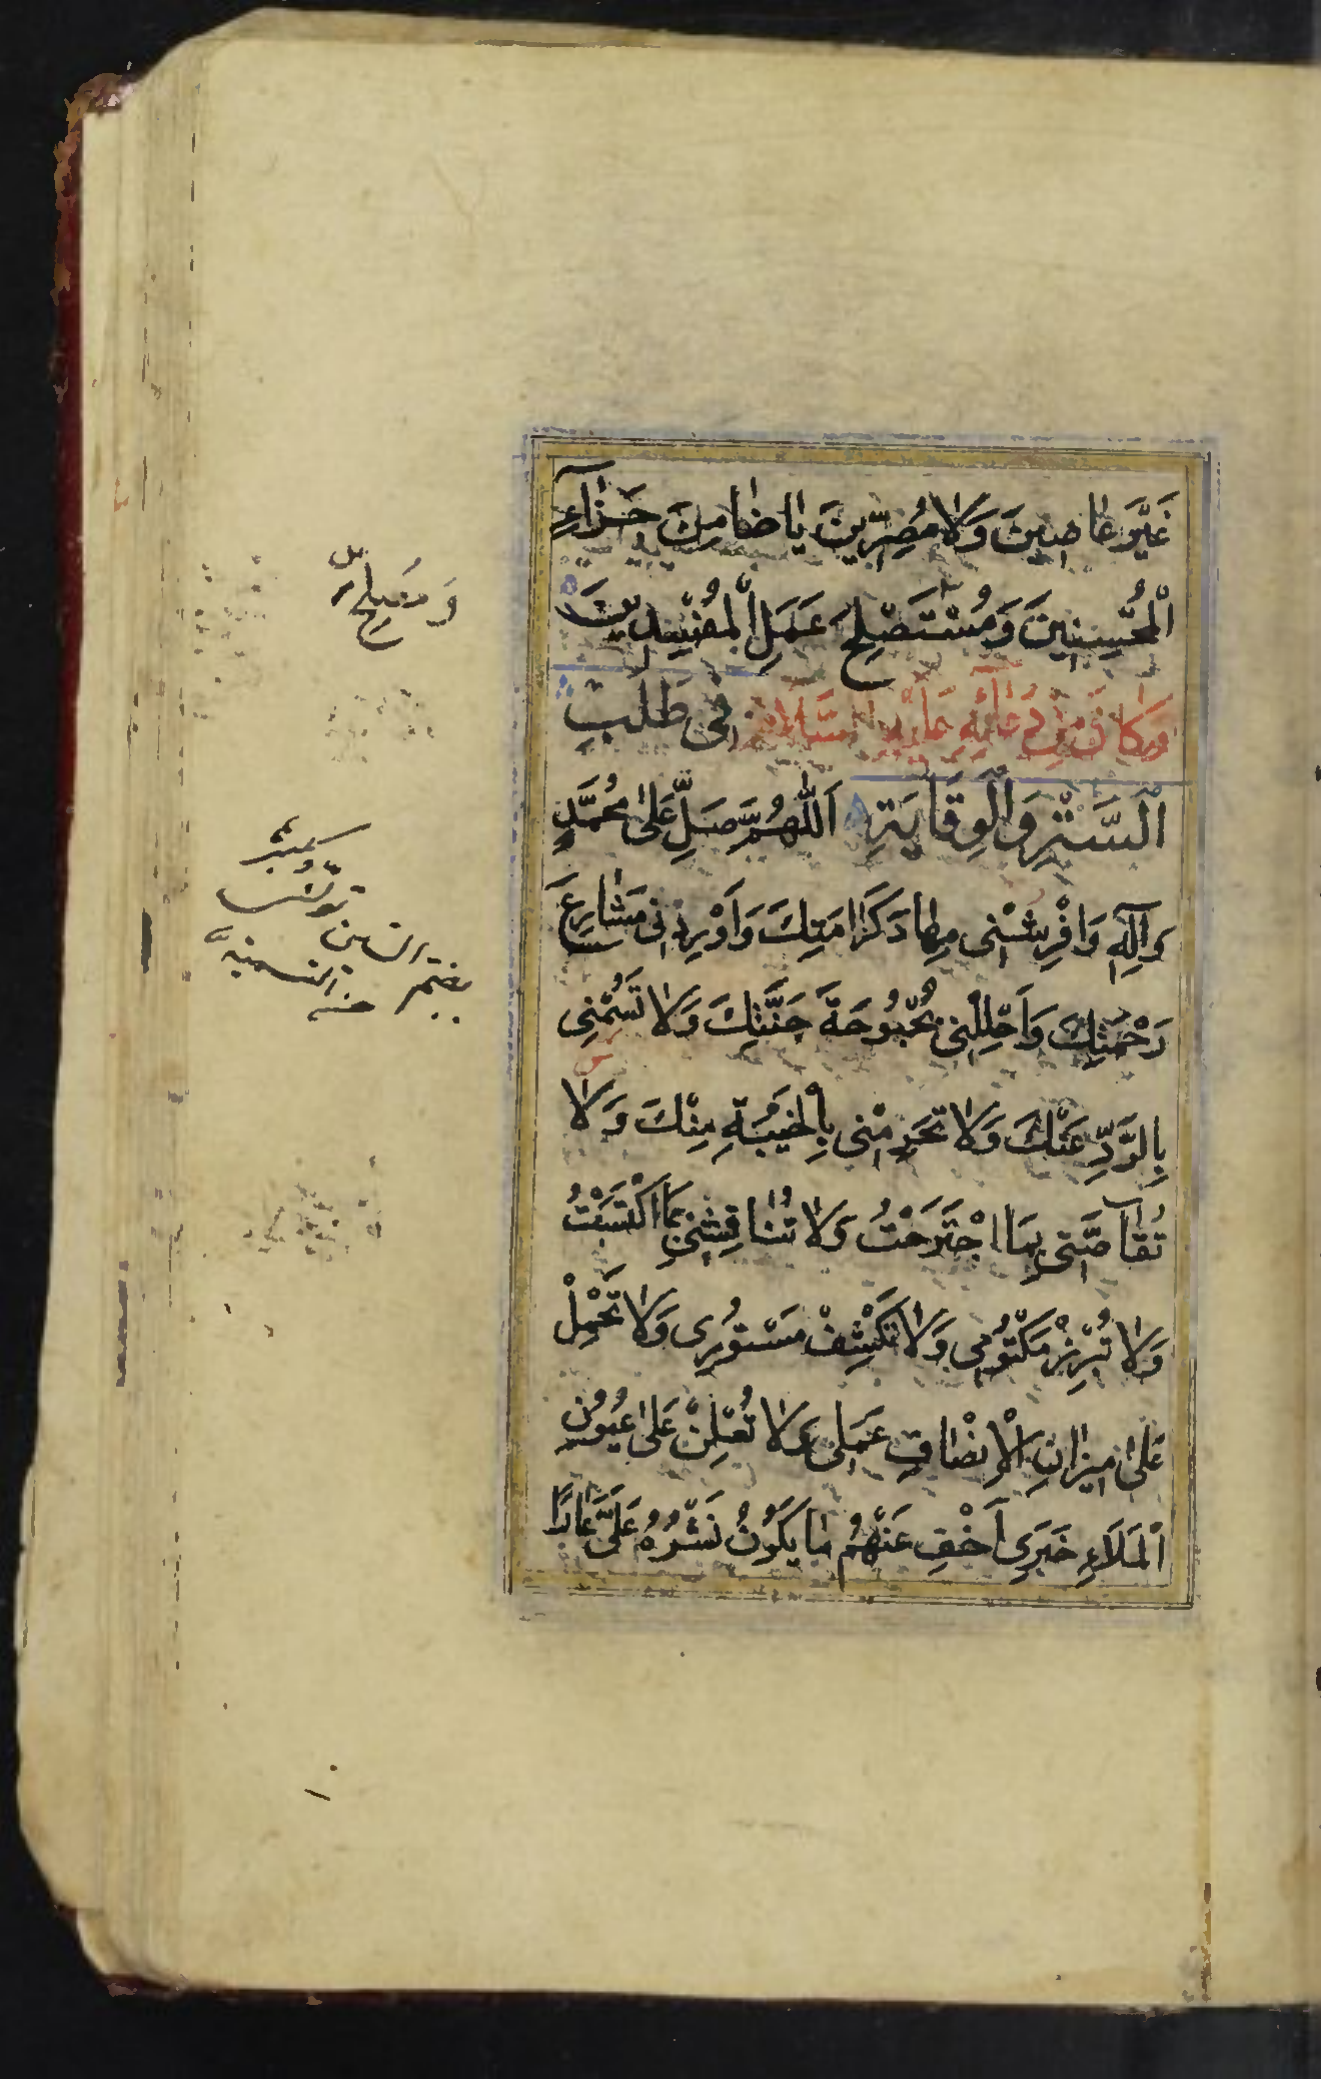 غَيْرَ عَاصِينَ وَلَا مُصِرِّينَ يَا ضَامِنَ جَزَآءِ
الْمُحْسِنِينَ وَمُسْتَصْلِحَ عَمَلِ الْمُفْسِدِينَ
وَكَانَ مِنْ دُعَآئِهِ عَلَيْهِ السَّلَامُ فِي طَلَبِ
السَّتْرِ وَالْوِقَايَةِ اَللّٰهُمَّ صَلِّ عَلَىٰ مُحَمَّدٍ
وَآلِهِ وَافْرِشْنِي مِهَادَ كَرَامَتِكَ وَاَوْرِدْنِي مَشَارِعَ
رَحْمَتِكَ وَاَحْلِلْنِي بُحْبُوحَةَ جَنَّتِكَ وَلَا تَسُمْنِي
بِالرَّدِّ عَنْكَ وَلَا تَحْرِمْنِي بِالْخَيْبَةِ مِنْكَ وَلَا
تُقَآصَّنِي بِمَا اجْتَرَحْتُ وَلَا تُنَاقِشْنِي بِمَا اكْتَسَبْتُ
وَلَا تُبْرِزْ مَكْتُومِي وَلَا تَكْشِفْ مَسْتُورِي وَلَا تَحْمِلْ
عَلَىٰ مِيزَانِ الْاِنْصَافِ عَمَلِي وَلَا تُعْلِنْ عَلَىٰ عُيُونِ
الْمَلَاءِ خَبَرِي اَخْفِ عَنْهُمْ مَا يَكُونُ نَشْرُهُ عَلَيَّ عَارًا
وَمُصْلِحَ
بضم التاء